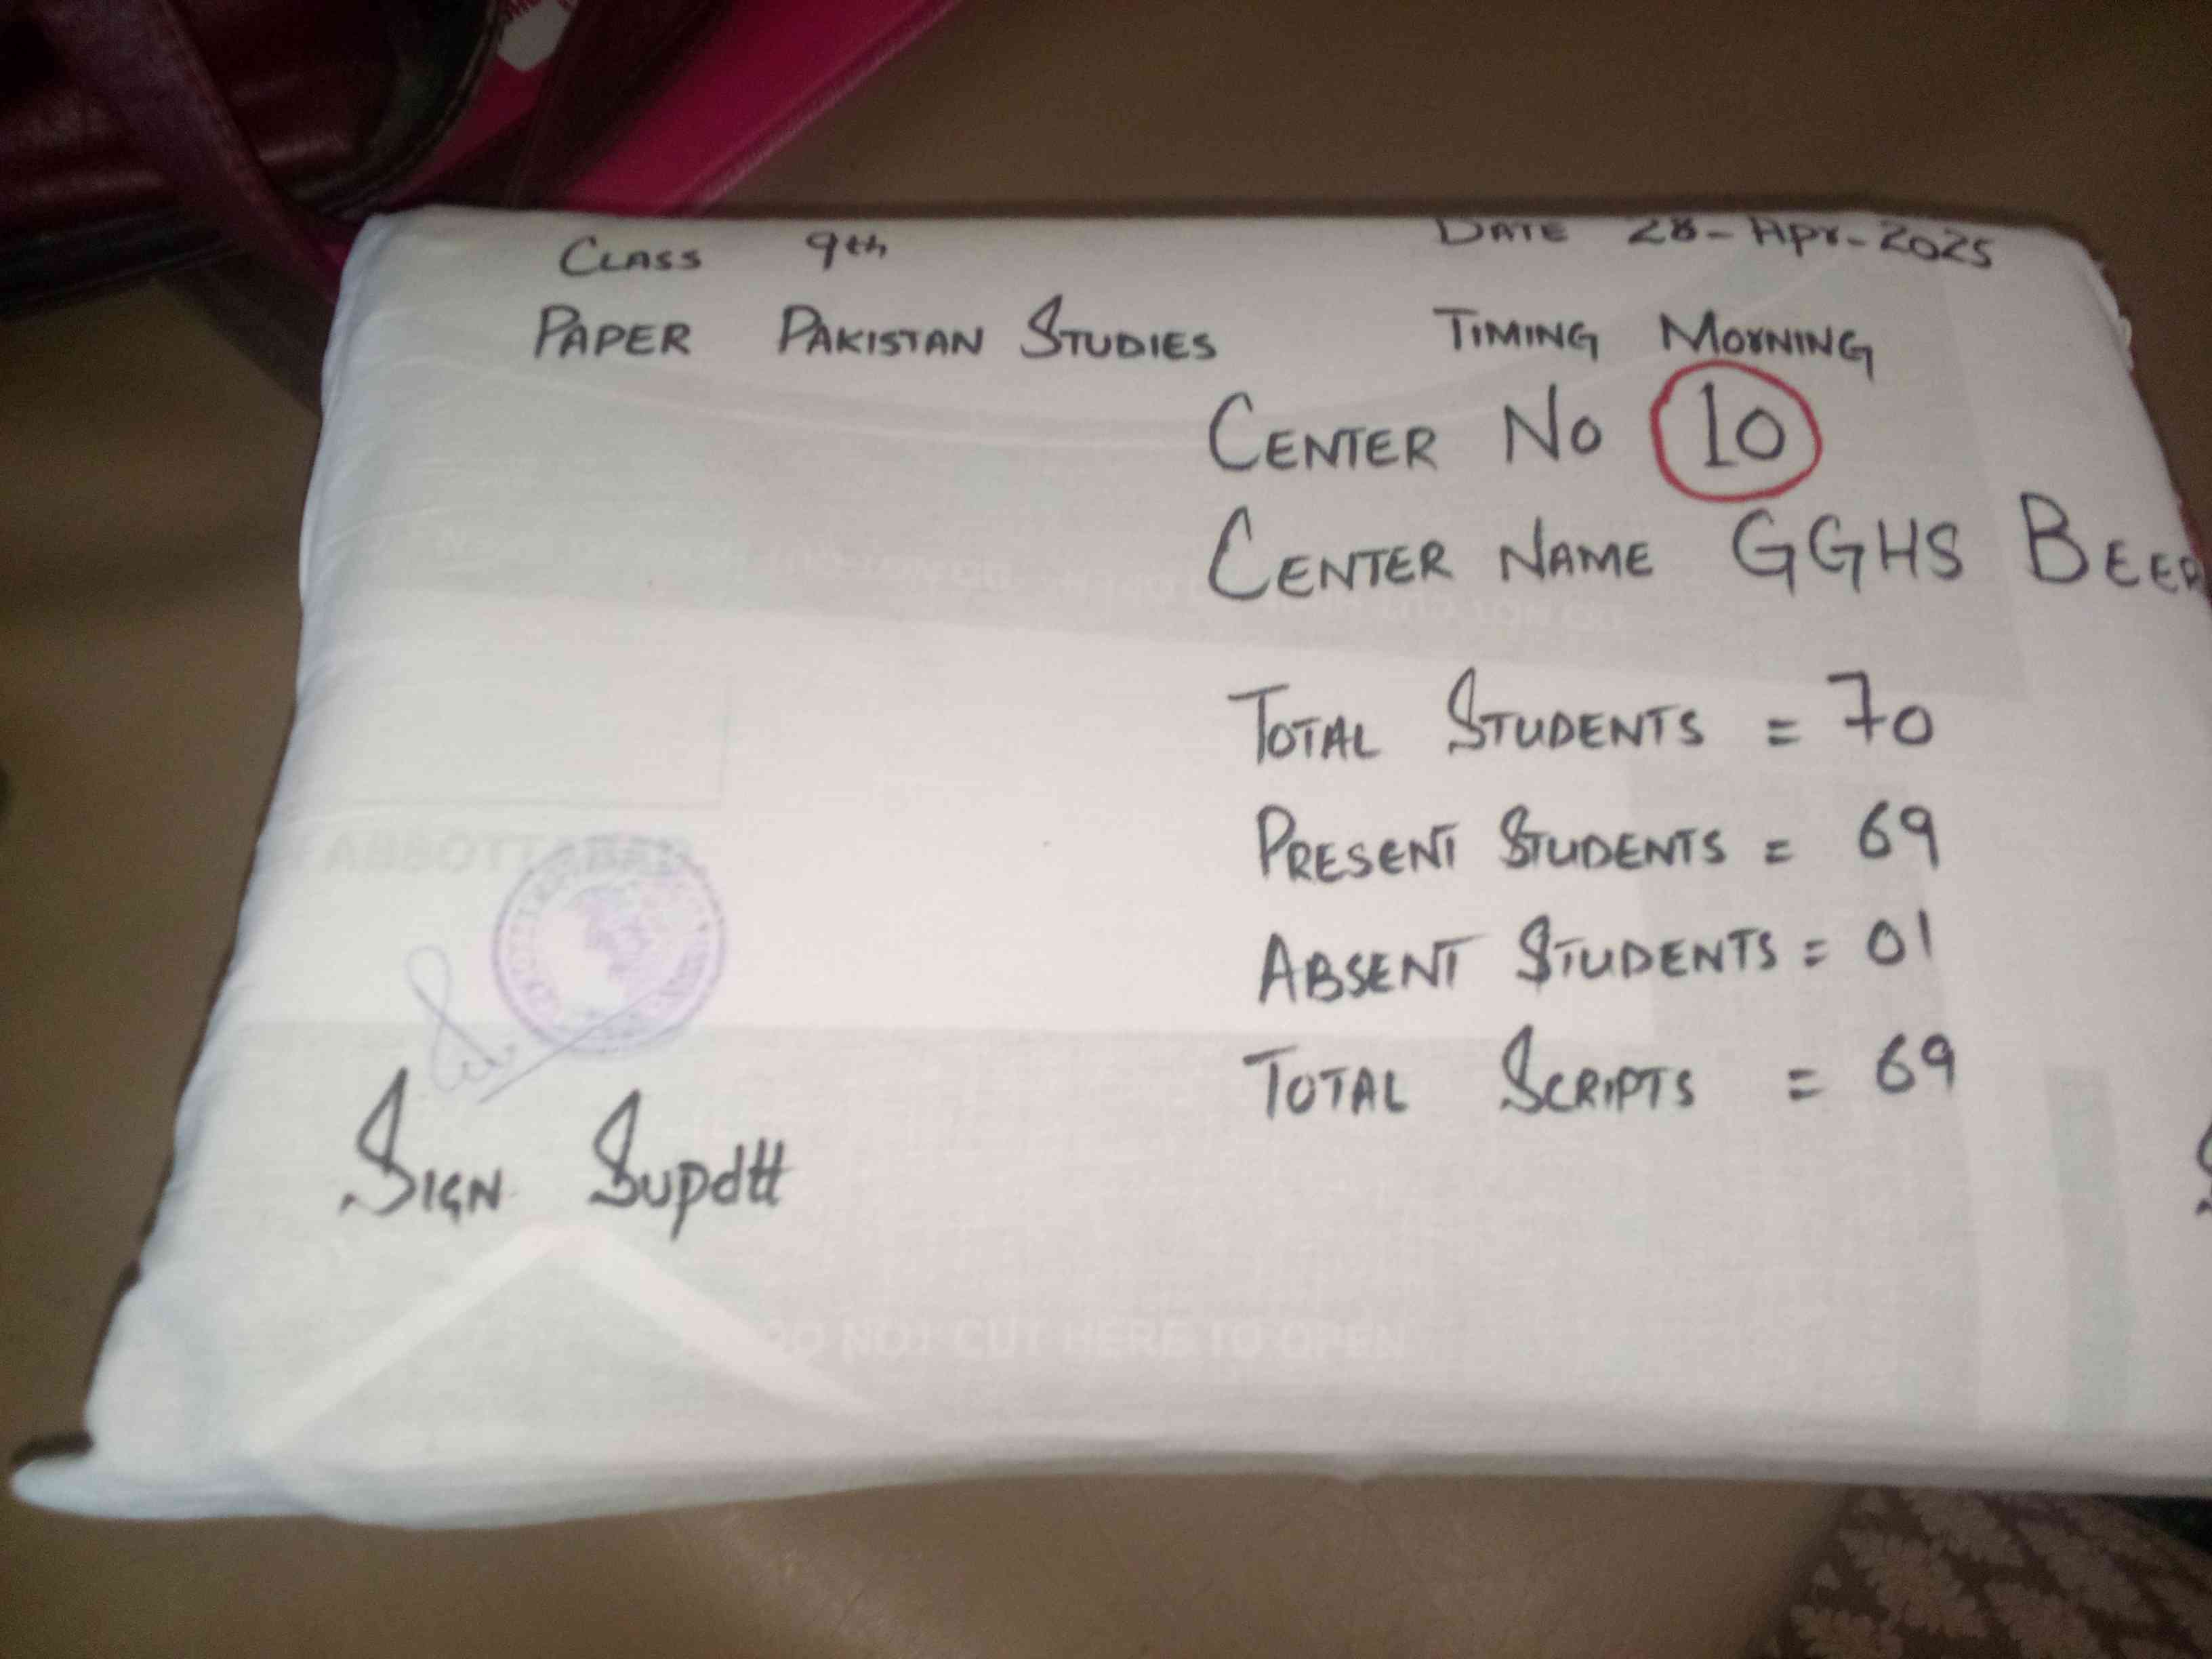 CLASS 9th DATE 28-Apr-2025
PAPER PAKISTAN STUDIES TIMING MORNING
CENTER NO 10
CENTER NAME GGHS BEER
TOTAL STUDENTS = 70
PRESENT STUDENTS = 69
ABSENT STUDENTS = 01
TOTAL SCRIPTS = 69
ABBOTTABAD
SIGN Supdtt
DO NOT CUT HERE TO OPEN